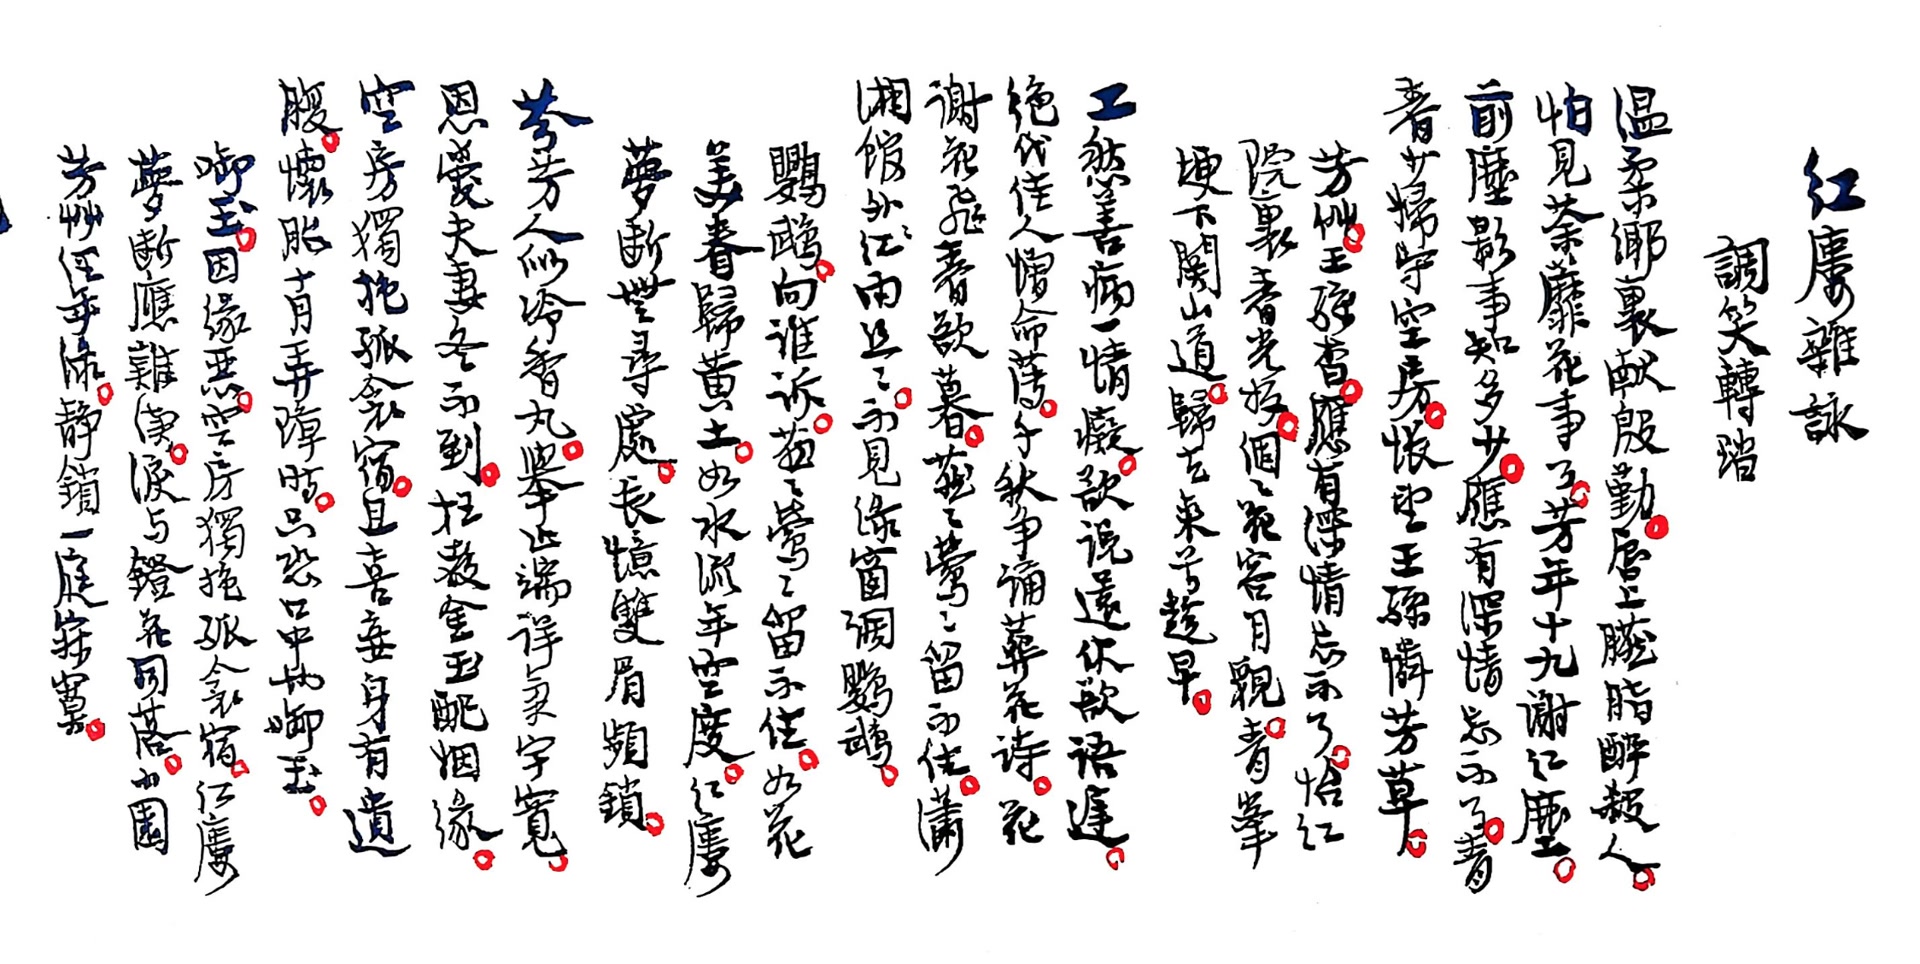 紅廔雜詠
調笑轉踏
溫柔鄉裏獻殷勤。唇上臙脂醉殺人。
怕見荼蘼花事了。芳年十九謝紅塵。
前塵影事知多少。應有深情忘不了。青
春少婦守空房。悵望王孫憐芳草。
芳艸。王孫杳。應有深情忘不了。怡紅
院裏春光好。個〻花容月貌。青峯
埂下關山道。歸去來兮趁早。
工愁善病一情癡。欲說還休欲語遲。
絕代佳人憎命薄。千秋爭誦葬花詩。花
謝花飛春欲暮。燕〻鶯〻留不住。瀟
湘館外江雨〻。不見綠窗調鸚鵡。
鸚鵡。向誰訴。燕〻鶯〻留不住。如花
美眷歸黃土。如水流年空度。紅廔
夢斷無尋處。長憶雙眉頻鎖。
芳人似冷香丸。舉止端詳氣宇寬。
恩愛夫妻冬不到。枉教金玉配姻緣。
空房獨抱孤衾宿。且喜妾身有遺
腹。懷胎十月弄璋時。只恐口中也啣玉。
啣玉。因緣惡。空房獨抱孤衾宿。紅廔
夢斷應難續。淚与鐙花同落。小園
芳艸經年綠。靜鎖一庭寂寞。